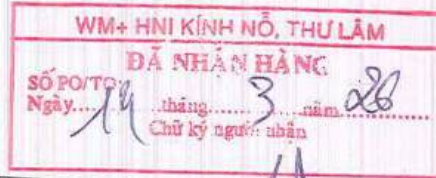 WM+ HNI KÍNH NỖ, THƯ LÂM
ĐÃ NHẬN HÀNG
SỐ PO/TO:
Ngày....14....tháng......3......năm 26............
Chữ ký người nhận